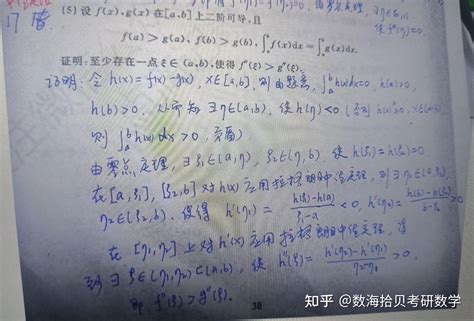 17 省
(5) 设 f(x), g(x) 在[a,b]上二阶可导,且
f(a) > g(a), f(b) > g(b), ∫ₐᵇ f(x)dx = ∫ₐᵇ g(x)dx.
证明:至少存在一点 ξ∈(a,b),使得 f″(ξ) > g″(ξ).
证明: 令 h(x) = f(x) - g(x), x∈[a,b], 则由题意, ∫ₐᵇ h(x)dx = 0, h(a) > 0,
h(b) > 0. 从而知 ∃ η∈(a,b), 使 h(η) < 0 (否则 h(x) ≥ 0, x∈(a,b)
则 ∫ₐᵇ h(x)dx > 0, 矛盾)
由零点定理, ∃ ξ₁∈(a,η), ξ₂∈(η,b), 使 h(ξ₁) = h(ξ₂) = 0
在 [a,ξ₁], [ξ₂,b] 对 h(x) 应用拉格朗日中值定理, 则 ∃ η₁∈(a,ξ₁),
η₂∈(ξ₂,b). 使得 h′(η₁) = h(ξ₁)-h(a) / ξ₁-a < 0, h′(η₂) = h(b)-h(ξ₂) / b-ξ₂ > 0
在 [η₁,η₂] 上对 h′(x) 应用拉格朗日中值定理, 得
∃ ξ∈(η₁,η₂)⊂(a,b), 使 h″(ξ) = h′(η₂)-h′(η₁) / η₂-η₁ > 0,
即 f″(ξ) > g″(ξ).
38
知乎 @数海拾贝考研数学